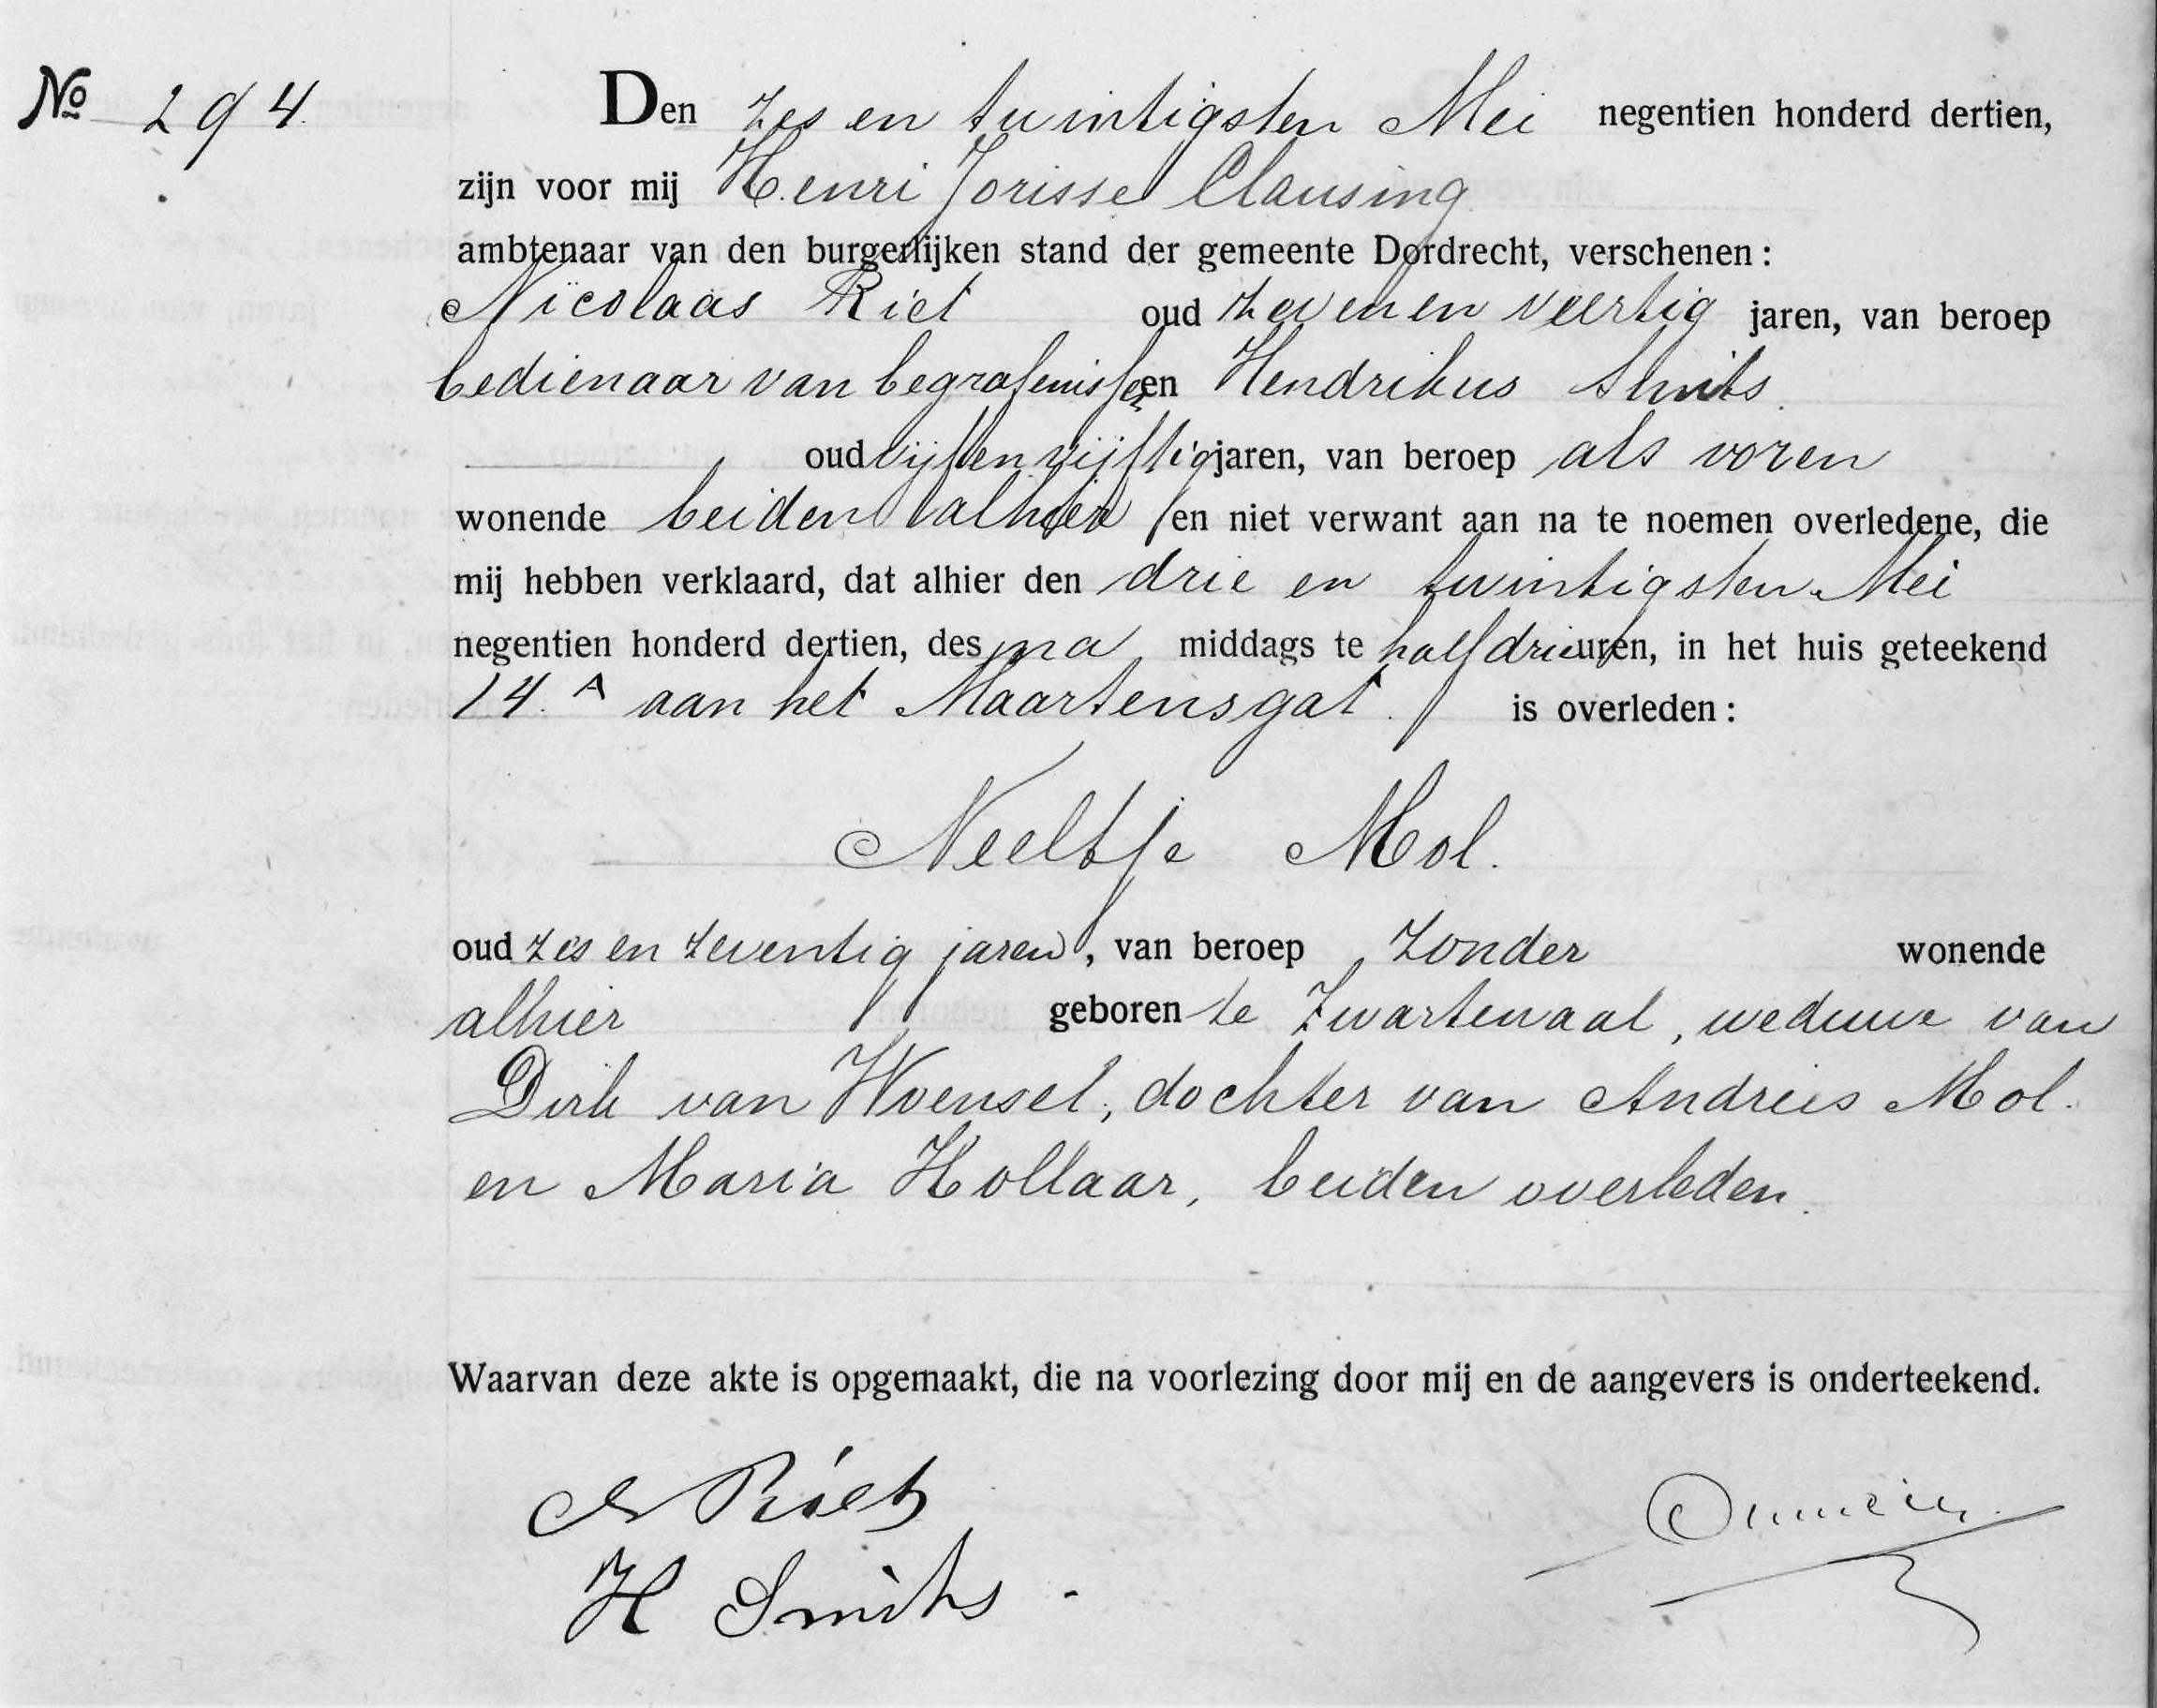 No 294.
Den zes en twintigsten Mei negentien honderd dertien,
zijn voor mij Henri Jorisse Clausing
ambtenaar van den burgerlijken stand der gemeente Dordrecht, verschenen:
Nicolaas Riet oud zeven en veertig jaren, van beroep
bedienaar van begrafenissen en Hendrikus Smits
oud vijf en vijftig jaren, van beroep als voren
wonende beiden alhier en niet verwant aan na te noemen overledene, die
mij hebben verklaard, dat alhier den drie en twintigsten Mei
negentien honderd dertien, des na middags te half drie uren, in het huis geteekend
14.A aan het Maartensgat. is overleden:
Neeltje Mol.
oud zes en zeventig jaren, van beroep zonder wonende
alhier geboren te Zwartewaal, weduwe van
Dirk van Woensel, dochter van Andries Mol.
en Maria Hollaar, beiden overleden.
Waarvan deze akte is opgemaakt, die na voorlezing door mij en de aangevers is onderteekend.
N Riet
H Smits